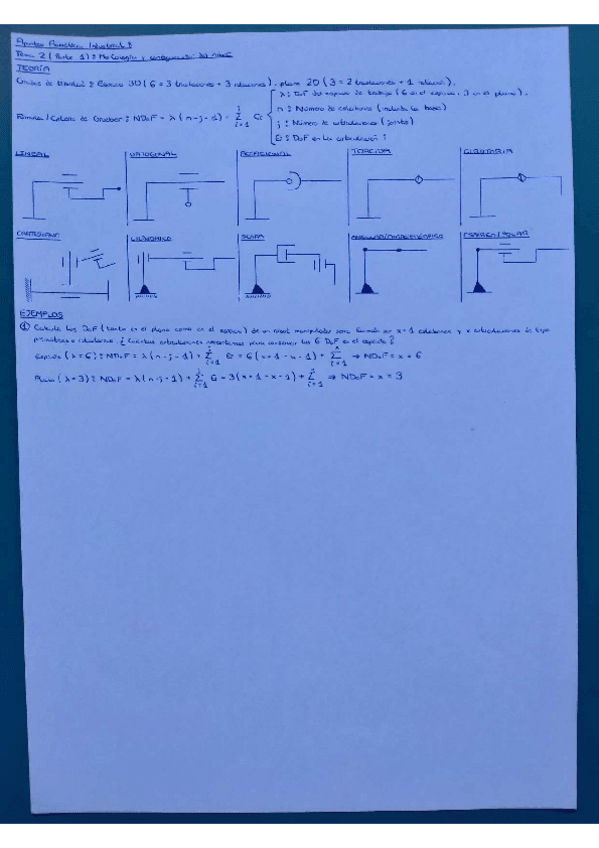 Apuntes Robótica Industrial :
Tema 2 (Parte 1) : Morfología y del robot
TEORÍA
Grados de libertad : Espacio 3D (6 = 3 traslaciones + 3 rotaciones), plano 2D (3 = 2 traslaciones + 1 rotación).
Fórmula / Cálculo de Grubler : NDoF = λ (n - j - 1) + Σ i=1 j fi
λ : DoF del espacio de trabajo (6 en el espacio, 3 en el plano).
n : Número de eslabones (incluida la base)
j : Número de articulaciones (joints)
fi : DoF en la articulación i
LINEAL ORTOGONAL ROTACIONAL TORSIÓN
CARTESIANO CILÍNDRICO SCARA ESFÉRICO / POLAR
EJEMPLOS
① Calcula los DoF (tanto en el plano como en el espacio) de un robot manipulador serie formado por x + 1 eslabones y x articulaciones de tipo
prismáticas o rotacionales. ¿Cuántas articulaciones necesitamos para conseguir los 6 DoF en el espacio?
Espacio (λ = 6) : NDoF = λ (n - j - 1) + Σ i=1 j fi = 6 (x + 1 - x - 1) + Σ i=1 x ⇒ NDoF = x = 6
Plano (λ = 3) : NDoF = λ (n - j - 1) + Σ i=1 j fi = 3 (x + 1 - x - 1) + Σ i=1 x ⇒ NDoF = x = 3